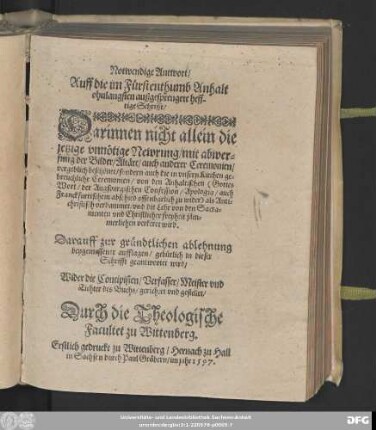 Notwendige Antwort/
Auff die im Fürstenthumb Anhalt
ohnlangsten außgesprengte heff-
tige Schrifft/
Darinnen nicht allein die
jetzige unnötige Newrung/mit abwerf-
fung der Bilder/Altar/auch anderer Ceremonien/
vergeblich beschönet/sondern auch die in unsern Kirchen ge-
breuchliche Ceremonien/ von den Anhaltischen Gottes
Wort/ der Augspurgischen Confession/Apologia/auch
Franckfurtischem abschied
christisch verdammet/und die Lehr von den Sacra-
menten und Christlicher freyheit jäm-
merlichen verkeret wird.
Darauff zur gründtlichen ablehnung
aufflagen/ gebürlich in dieser
Schrifft geantwortet wirt/
Wider die Concipisten/Verfasser/Meister und
Tichter des Buchs/ gerichtet und gestellet/
Durch die Theologische
Facultet zu Wittenberg.
Erstlich gedruckt zu Wittenberg/Hernach zu Hall
in Sachsen durch Paul Gräbern/im jahr 1597.
Universitäts- und Landesbibliothek Sachsen-Anhalt
DFG